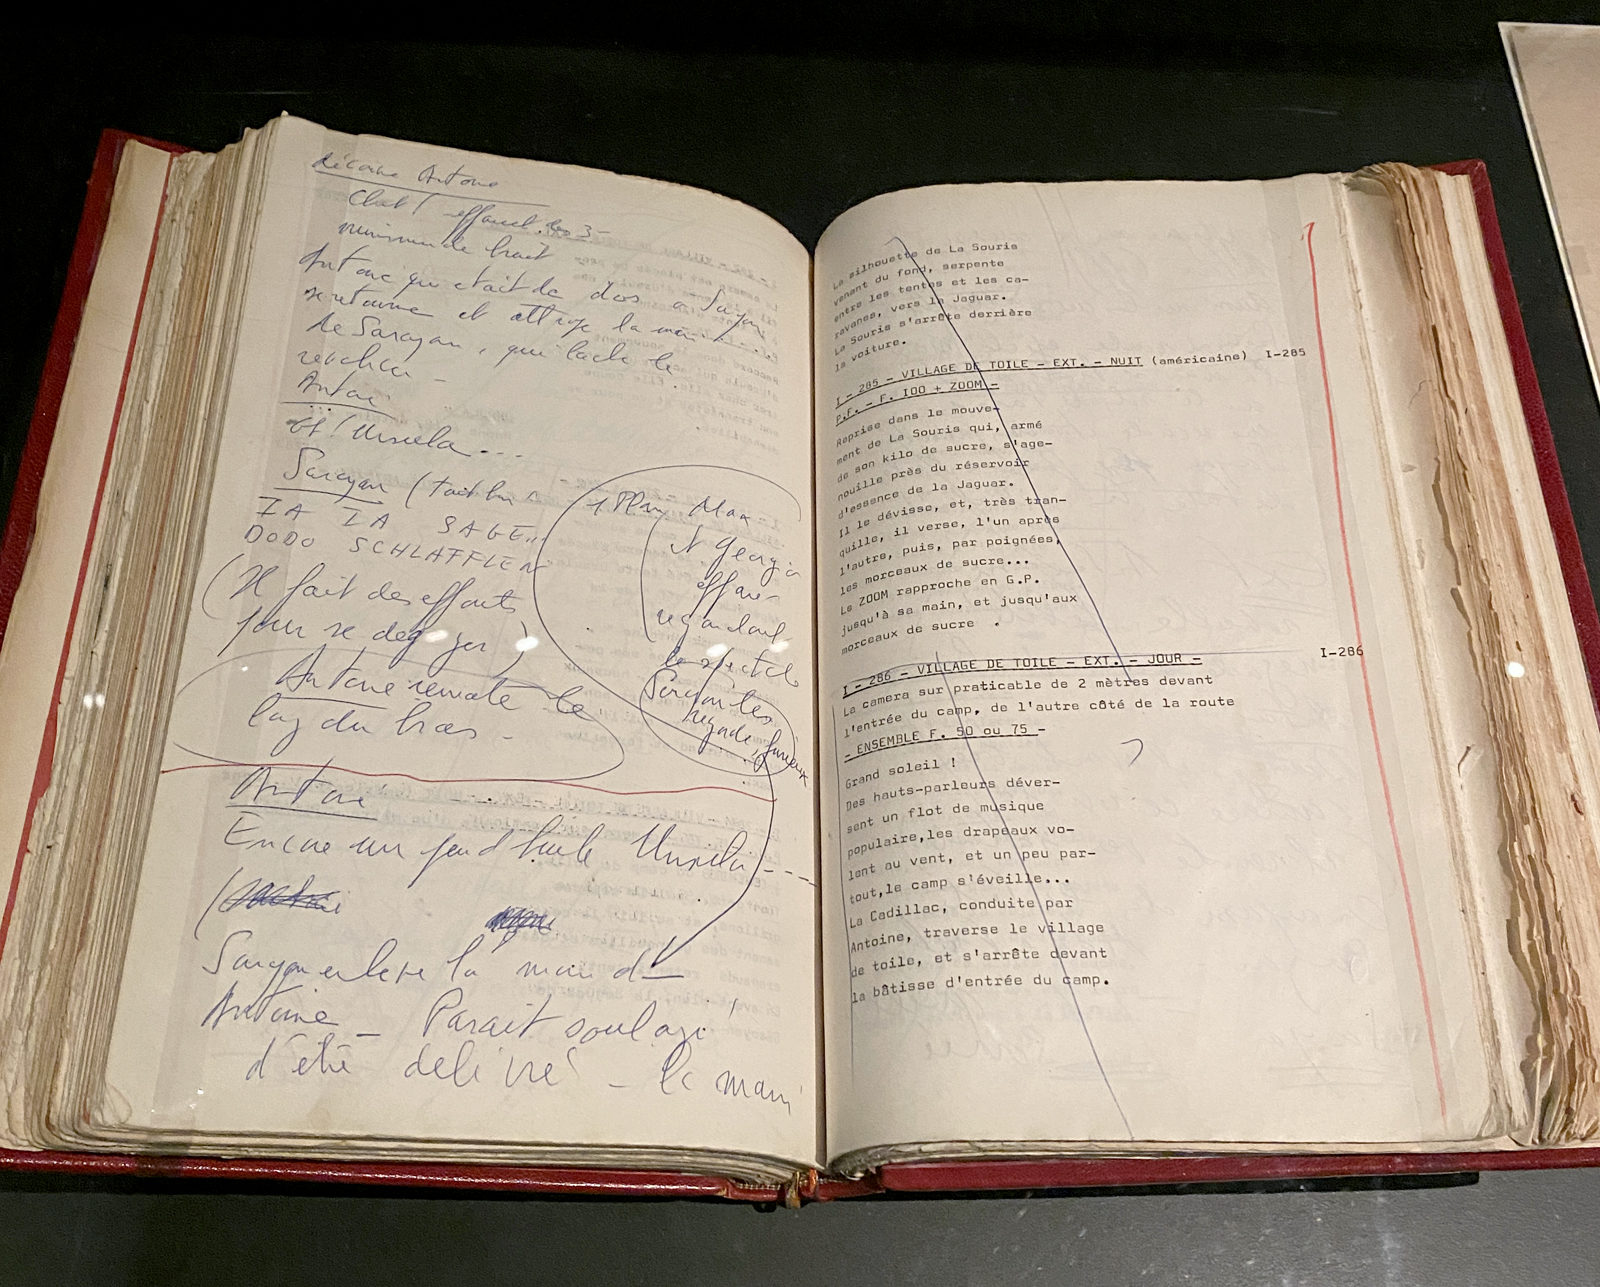 Antoine
Chut !
Antoine qui était de dos à
se retourne et attrape la main
de Saroyan, qui lache le
Antoine
Ursula...
Saroyan (
IA IA SAGE..
DODO SCHLAFFLEN
(Il fait des efforts
pour se dégager)
Antoine remonte le
long du bras -
1 Plan Max
et Georgia
regardant
le spectacle
Antoine
Encore un peu d'huile Ursula ----
Saroyan enlève la main d'
Antoine - Parait soulagé
d'être délivré - la main
La silhouette de La Souris
venant du fond, serpente
entre les tentes et les ca-
ravanes, vers la Jaguar.
La Souris s'arrête derrière
la voiture.
I - 285 - VILLAGE DE TOILE - EXT. - NUIT (américaine) I-285
P.F. - F. I00 + ZOOM -
Reprise dans le mouve-
ment de La Souris qui, armé
de son kilo de sucre, s'age-
nouille près du réservoir
d'essence de la Jaguar.
Il le dévisse, et, très tran-
quille, il verse, l'un après
l'autre, puis, par poignées,
les morceaux de sucre...
Le ZOOM rapproche en G.P.
jusqu'à sa main, et jusqu'aux
morceaux de sucre .
I - 286 - VILLAGE DE TOILE - EXT. - JOUR - I-286
La camera sur praticable de 2 mètres devant
l'entrée du camp, de l'autre côté de la route
- ENSEMBLE F. 50 ou 75 -
Grand soleil !
Des hauts-parleurs déver-
sent un flot de musique
populaire,les drapeaux vo-
lent au vent, et un peu par-
tout,le camp s'éveille...
La Cadillac, conduite par
Antoine, traverse le village
de toile, et s'arrête devant
la bâtisse d'entrée du camp.